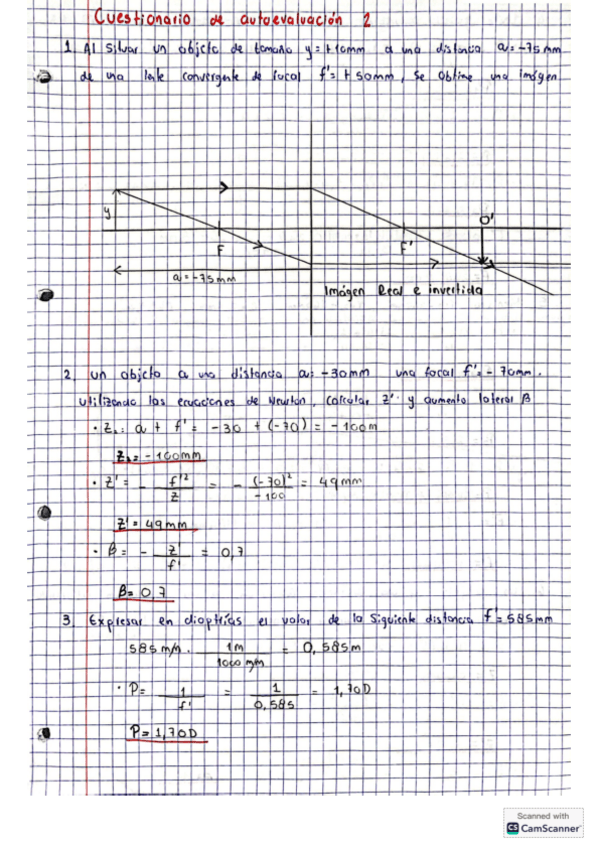 Cuestionario de autoevaluación 2
1. Al situar un objeto de tamaño y=+10mm a una distancia a=-75mm
de una lente convergente de focal f'=+50mm, se obtine una imágen
y
F
F'
O'
a=-75mm
Imágen Real e invertida
2. un objeto a una distancia a=-30mm una focal f'=-70mm.
Utilizando las ecuaciones de Newton, calcular z' y aumento lateral β
· z = a + f' = -30 + (-70) = -100m
z = -100mm
· z' = - f'²/z = - (-70)²/-100 = 49mm
z' = 49mm
· β = - z'/f' = 0,7
β = 0,7
3. Expresar en dioptrías el valor de la siguiente distancia f'=585mm
585 m/m . 1m/1000 m/m = 0,585m
· P = 1/f' = 1/0,585 = 1,70D
P = 1,70D
Scanned with
CS CamScanner